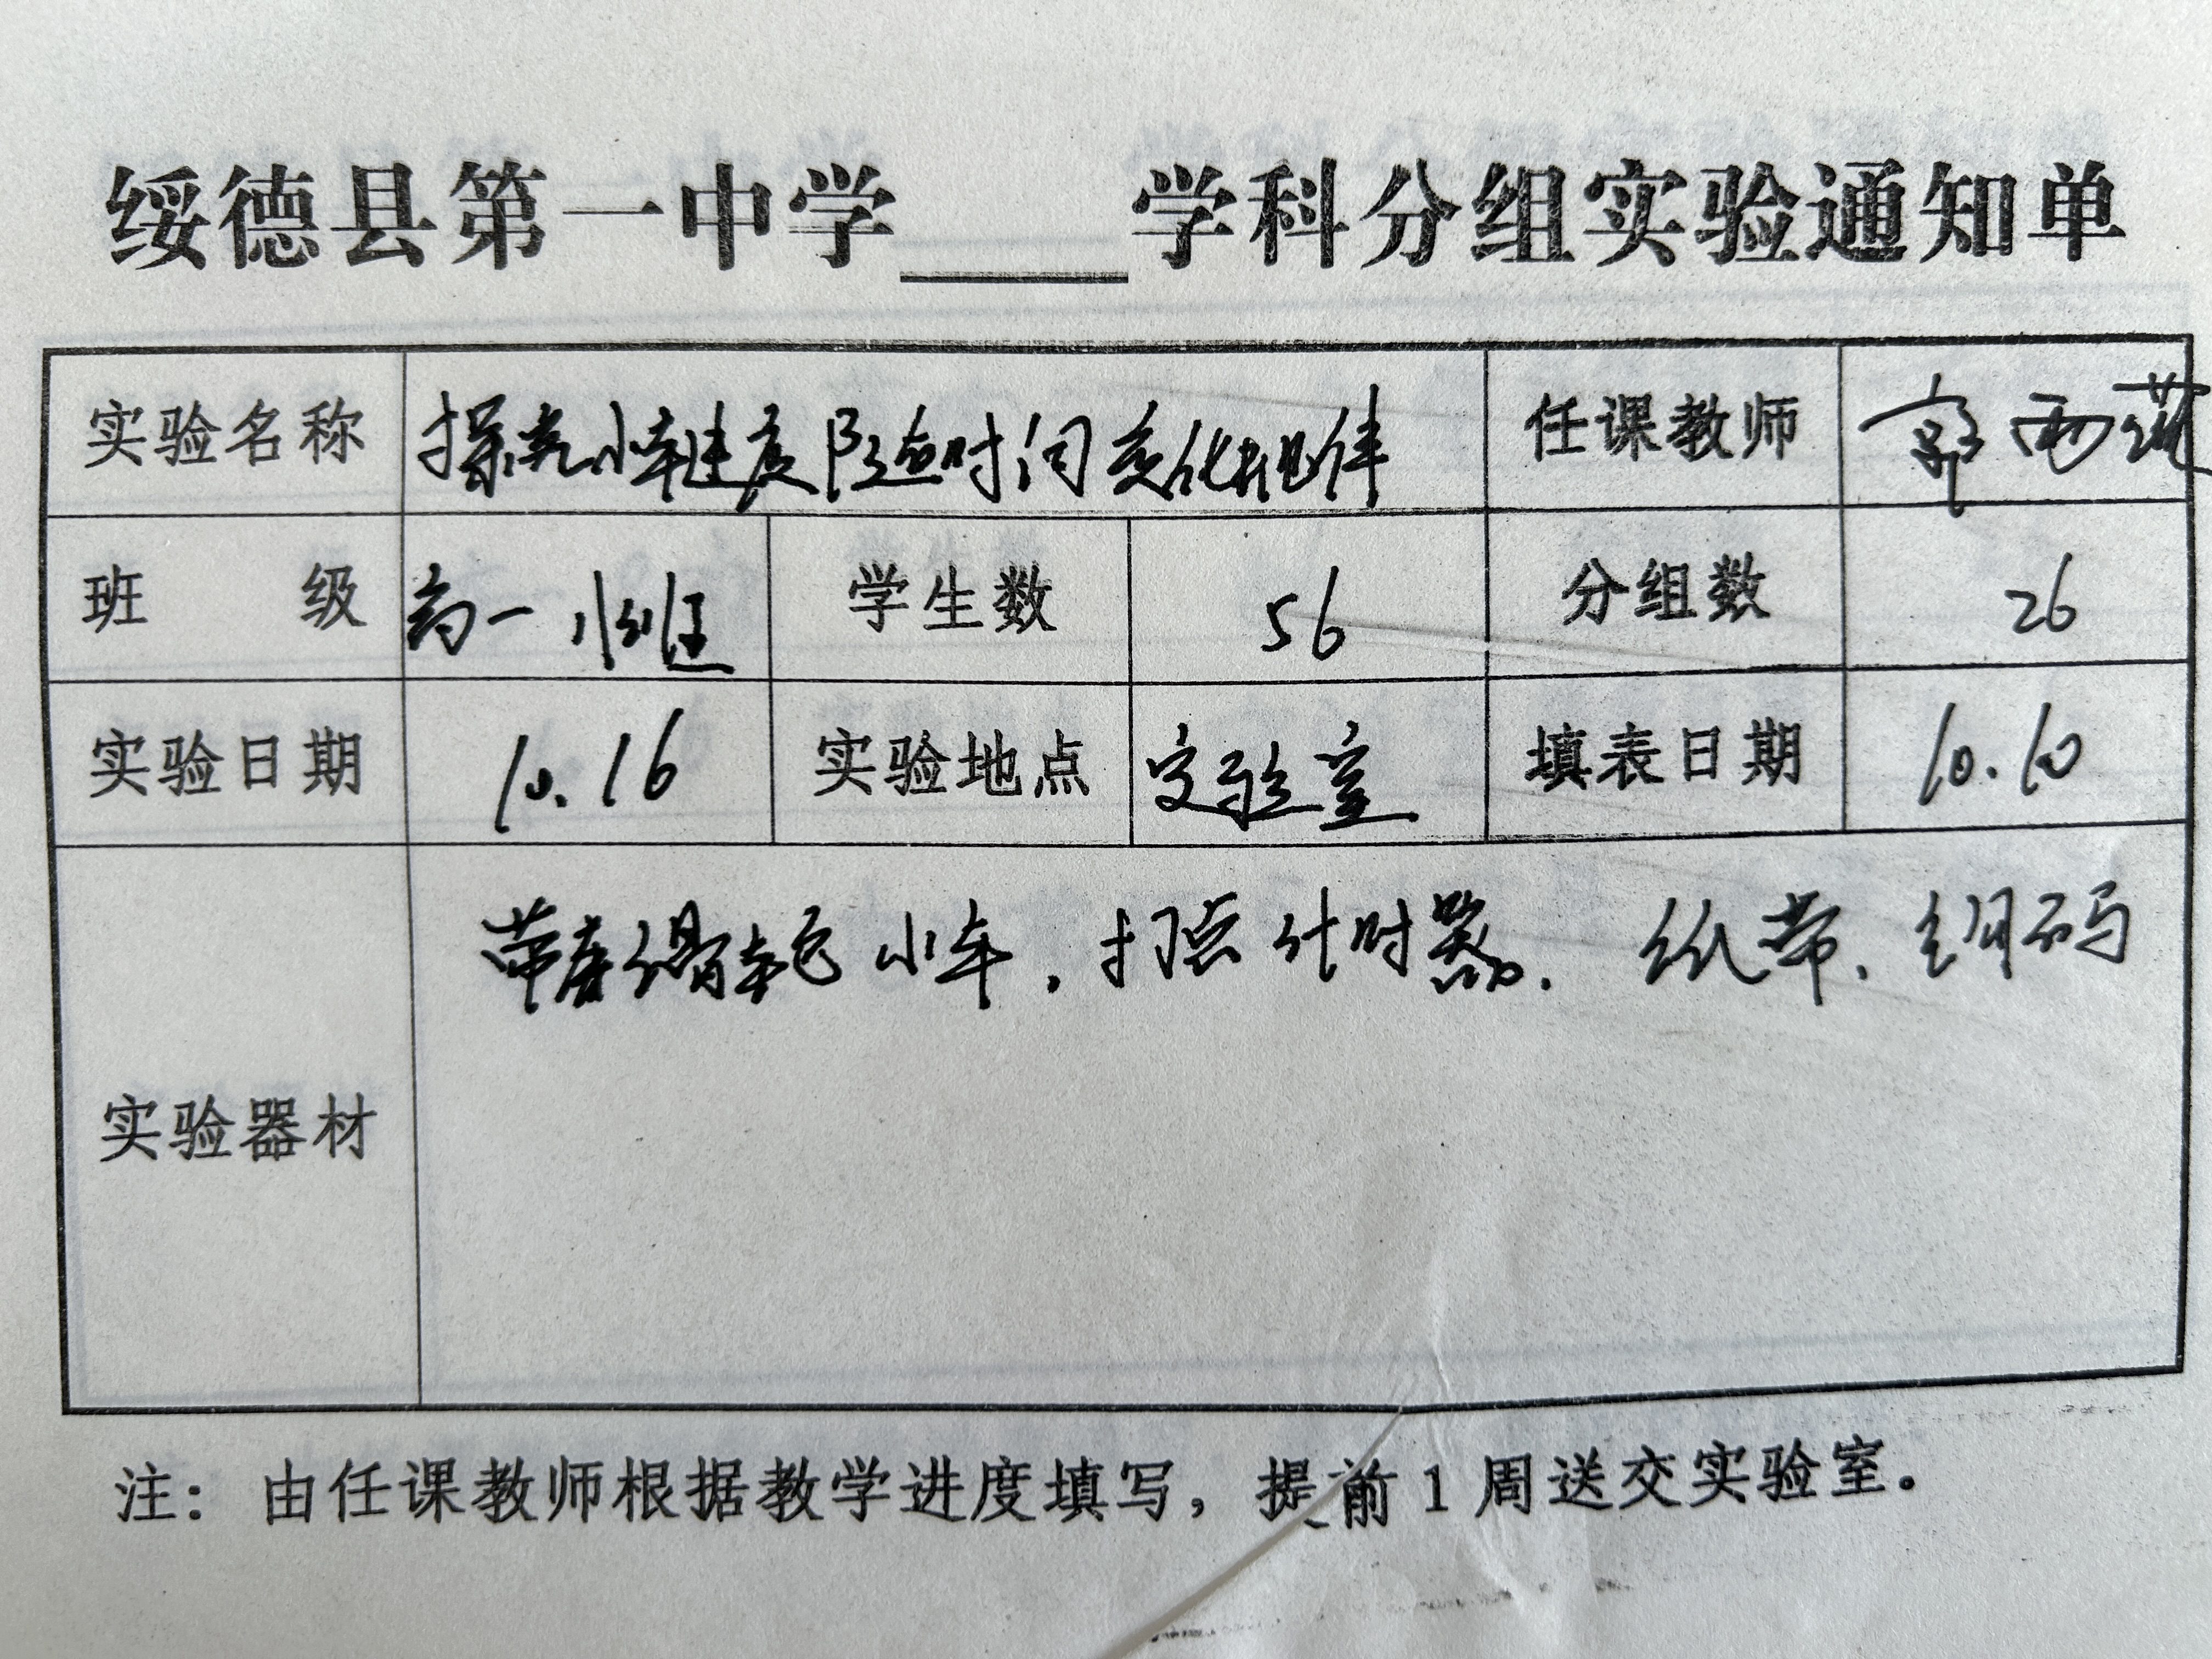 绥德县第一中学____学科分组实验通知单
实验名称 探究小车速度随时间变化规律 任课教师 郭
班 级 高一 班 学生数 56 分组数 26
实验日期 10.16 实验地点 实验室 填表日期 10.10
实验器材 带滑轮 小车, 打点计时器. 纸带. 码
注：由任课教师根据教学进度填写，提前1周送交实验室。